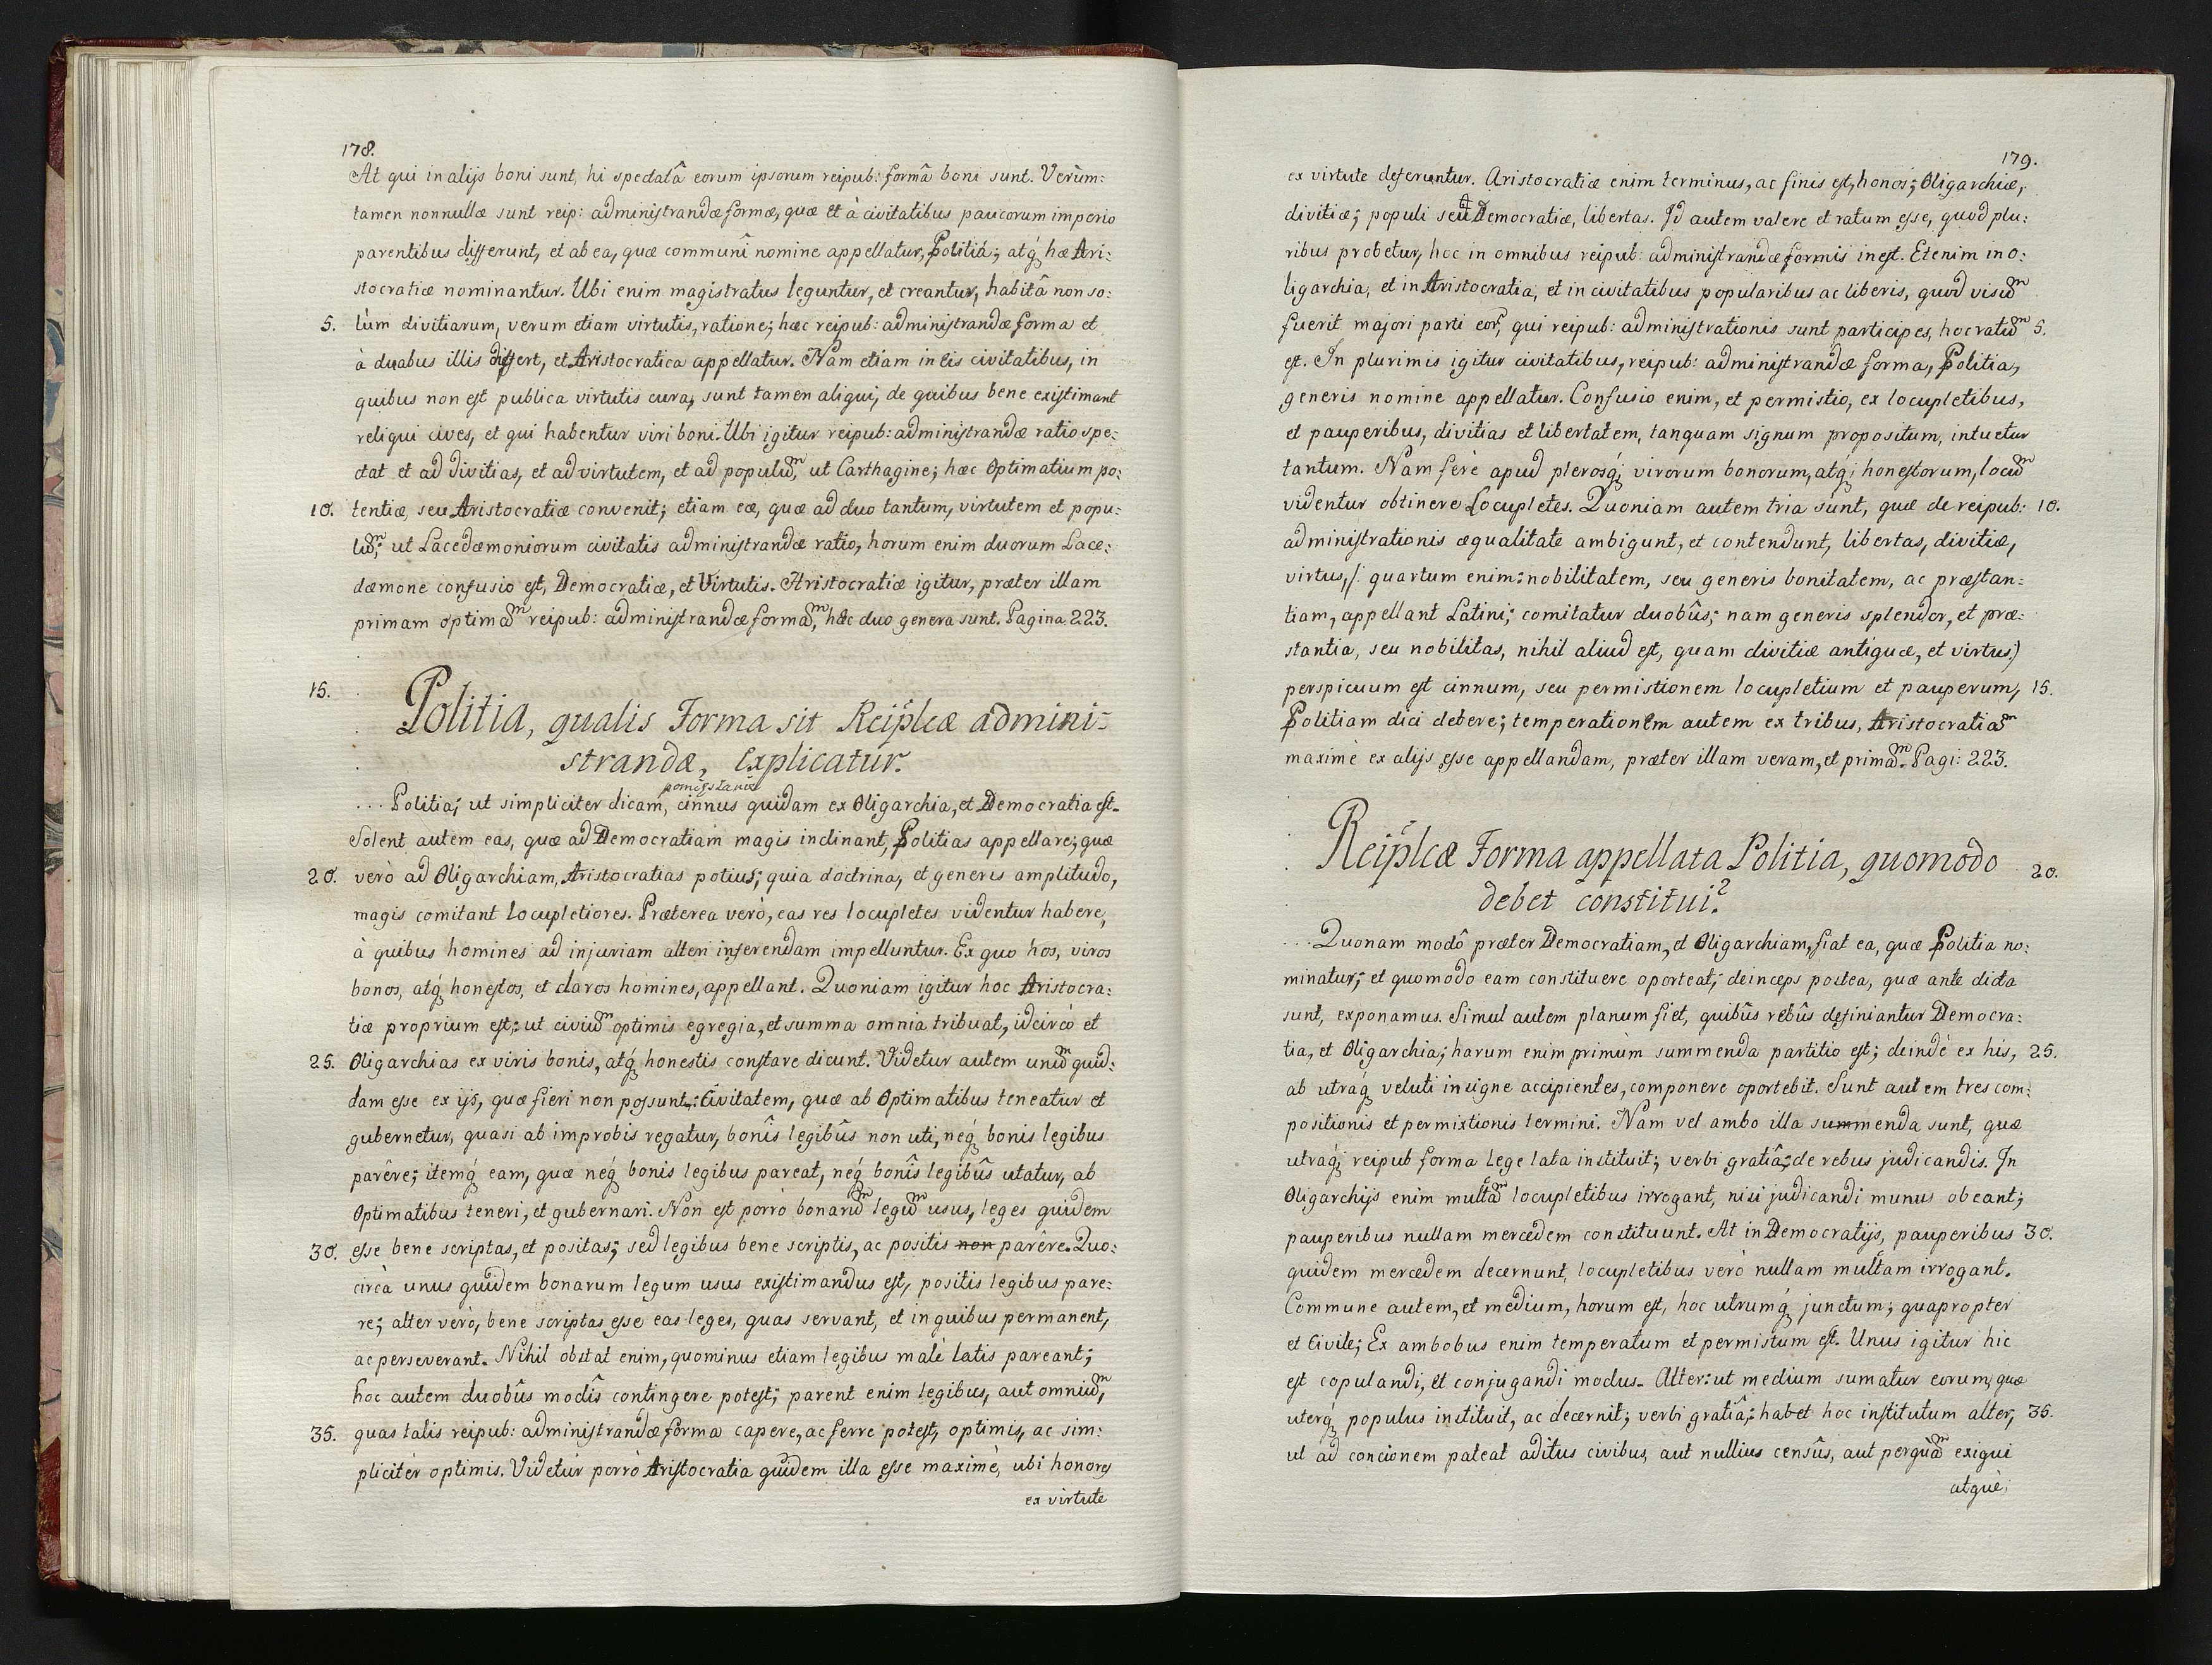 178.
At qui in alijs boni sunt, hi spectatâ eorum ipsorum reipub: formâ boni sunt. Verùm:
tamen nonnullæ sunt reip: administrandæ formæ, quæ et à civitatibus paucorum imperio
parentibus differunt, et ab ea, quæ communî nomine appellatur, Politiâ; atq́ hæ Ari:
stocratiæ nominantur. Ubi enim magistratus leguntur, et creantur, habitâ non so:
5. lùm divitiarum, verum etiam virtutis, ratione; hæc reipub: administrandæ forma et
à duabus illis differt, et Aristocratica appellatur. Nam etiam in eis civitatibus, in
quibus non est publica virtutis cura, sunt tamen aliqui, de quibus bene existimant
religui cives, et qui habentur viri boni. Ubi igitur reipub: administrandæ ratio spe:
ctat et ad divitias, et ad virtutem, et ad populum̃, ut Carthagine; hæc Optimatium po:
10. tentiæ, seu Aristocratiæ convenit; etiam eæ, quæ ad duo tantum, virtutem et popu:
lum̃; ut Lacedæmoniorum civitatis administrandæ ratio, horum enim duorum Lace:
dæmone confusio est, Democratiæ, et Virtutis. Aristocratiæ igitur, præter illam
primam optimam̃ reipub: administrandæ formam̃, hæc duo genera sunt. Pagina 223.
15. Politia, qualis Forma sit Reipłcæ admini-
strandæ, explicatur.
... Politia; ut simpliciter dicam, cinnus quidam ex Oligarchia, et Democratia est.
Solent autem eas, quæ ad Democratiam magis inclinant, Politias appellare; quæ
20. verò ad Oligarchiam, Aristocratias potius; quia doctrina, et generis amplitudo,
magis comitant locupletiores. Præterea verò, eas res locupletes videntur habere,
à quibus homines ad injuriam alteri inferendam impelluntur. Ex quo hos, viros
bonos, atq́ honestos, et claros homines, appellant. Quoniam igitur hoc Aristocra:
tiæ proprium est; ut civium̃ optimis egregia, et summa omnia tribuat, idcircò et
25. Oligarchias ex viris bonis, atq́ honestis constare dicunt. Videtur autem unum̃ quid:
dam esse ex ijs, quæ fieri non possunt: Civitatem, quæ ab Optimatibus teneatur et
gubernetur, quasi ab improbis regatur, bonîs legibûs non uti, neq́ bonis legibus
parêre; itemq́ eam, quæ neq́ bonis legibus pareat, neq́ bonîs legibûs utatur, ab
Optimatibus teneri, et gubernari. Non est porrò bonarum̃ legum̃ usus, leges quidem
30. esse bene scriptas, et positas; sed legibus bene scriptis, ac positis non parêre. Quo:
circà unus quidem bonarum legum usus existimandus est, positis legibus pare:
re; alter verò, bene scriptas esse eas leges, quas servant, et in quibus permanent,
ac perseverant. Nihil obstat enim, quominus etiam legibus malè latis pareant;
hoc autem duobûs modîs contingere potest; parent enim legibus, aut omnium̃,
35. quas talis reipub: administrandæ forma capere, ac ferre potest, optimis, ac sim:
plicitèr optimis. Videtùr porrò Aristocratia quidem illa esse maximè, ubi honores
ex virtute
179.
ex virtute deferuntur. Aristocratiæ enim terminus, ac finis est, honos; Oligarchiæ,
divitiæ; populi seu Democratiæ, libertas. Id autem valere et ratum esse, quod plu:
ribus probetur, hoc in omnibus reipub: administrandæ formis inest. Etenim in o:
ligarchia, et in Aristocratia, et in civitatibus popularibus ac liberis, quod visum̃
fuerit majori parti eor̃, qui reipub: administrationis sunt participes, hoc ratum̃ 5.
est. In plurimis igitur civitatibus, reipub: administrandæ forma, Politia,
generis nomine appellatur. Confusio enim, et permistio, ex locupletibus,
et pauperibus, divitias et libertatem, tanquam signum propositum, intuetur
tantum. Nam ferè apud plerosq́; virorum bonorum, atq́; honestorum, locum̃
videntur obtinere Locupletes. Quoniam autem tria sunt, quæ de reipub: 10.
administrationis æqualitate ambigunt, et contendunt, libertas, divitiæ,
virtus, /: quartum enim: nobilitatem, seu generis bonitatem, ac præstan:
tiam, appellant Latini; comitatur duobûs; nam generis splendor, et præ:
stantia, seu nobilitas, nihil aliud est, quam divitiæ antiquæ, et virtus:)
perspicuum est cinnum, seu permistionem locupletium et pauperum, 15.
Politiam dici debere; temperationem autem ex tribus, Aristocratiam̃
maximè ex alijs esse appellandam, præter illam veram, et primam̃. Pagi: 223.
Reipłcæ Forma appellata Politia, quomodo 20.
debet constitui?
... Quonam modô præter Democratiam, et Oligarchiam, fiat ea, quæ Politia no:
minatur; et quomodo eam constituere oporteat; deinceps postea, quæ ante dicta
sunt, exponamus. Simul autem planum fiet, quibûs rebûs definiantur Democra:
tia, et Oligarchia; harum enim primùm summenda partitio est; deindè ex his, 25.
ab utráq́ veluti insigne accipientes, componere oportebit. Sunt autem tres com:
positionis et permixtionis termini. Nam vel ambo illa summenda sunt, quæ
utraq́; reipub forma lege lata instituit; verbi gratiâ; de rebus judicandis. In
Oligarchijs enim multam̃ locupletibus irrogant, nisi judicandi munus obeant;
pauperibus nullam mercedem constituunt. At in Democratijs, pauperibus 30.
quidem mercedem decernunt, locupletibus verò nullam multam irrogant.
Commune autem, et medium, horum est, hoc utrumq́ junctum; quapropter
et Civile; Ex ambobus enim temperatum et permistum est. Unus igitur hic
est copulandi, et conjugandi modus. Alter: ut medium sumatur eorum, quæ
uterq́ populus instituit, ac decernit; verbi gratiâ; habet hoc institutum alter, 35.
ut ad concionem pateat aditus civibus, aut nullius censûs, aut perquàm̃ exigui
atquè;